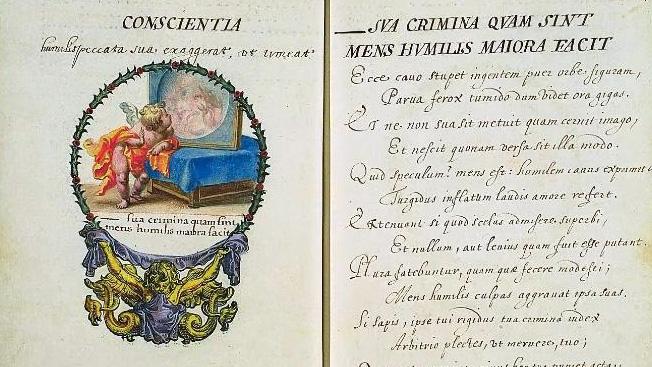 CONSCIENTIA
humilis peccata sua exaggerat, ut timeat
sua crimina quam sint
mens humilis maiora facit
SVA CRIMINA QVAM SINT
MENS HVMILIS MAIORA FACIT
Ecce cavo stupet ingentem puer orbe figuram,
Parua ferox tumido dum videt ora gigas.
Et ne non suasit metuit quam cernit imago,
Et nescit quonam versa sit illa modo.
Quid speculum? mens est: humilem cauus exprimit
Turgidus inflatum laudis amore refert.
Extenuant si quod scelus admisere superbi,
Et nullum, aut leuius quam fuit esse putant.
Plura fatebuntur, quam quæ fecere modesti;
Mens humilis culpas aggrauat ipsa suas.
Si sapis, ipse tui rigidus tua crimina iudex
Arbitrio plectes, ut meruere, tuo;